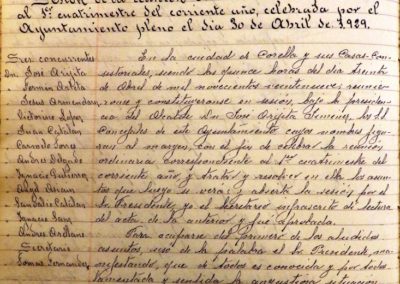 al 1er cuatrimestre del corriente año, celebrada por el
Ayuntamiento pleno el dia 30 de Abril de 1.929.
Sres concurrentes
Dn. José Arijita
" Fermin
" Jesus Armendariz
" Victorino Lopez
" Juan Catalan
" Carmelo
" Andres Delgado
" Ignacio Gutierrez
" Angel Arnain
" Catalan
" Ignacio Sanz
" Andres Arellano
Secretario
" Tomas Fernandez
En la ciudad de Corella y sus Casas Con-
sistoriales, siendo las quince horas del dia treinta
de Abril de mil novecientos veintinueve, reunie-
ronse y constituyeronse en sesion, bajo la presiden-
cia del Alcalde Dn. José Arijita Jimenez, los S.S.
Concejales de este Ayuntamiento cuyos nombres figu-
ran al margen, con el fin de celebrar la reunión
ordinaria correspondiente al 1er cuatrimestre del
corriente año, y tratar y resolver en ella los asun-
tos que luego se verá; y abierta la sesión por el
Sr. Presidente, yo el Secretario infrascrito di lectura
del acta de la anterior y fué aprobada.
Para ocuparse del primero de los aludidos
asuntos, usó de la palabra el Sr. Presidente, ma-
nifestando, que de todos es conocida y por todos
lamentada y sentida la angustiosa situación